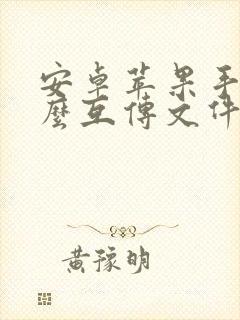 安卓苹果手
麼互傳文件
黃豫明